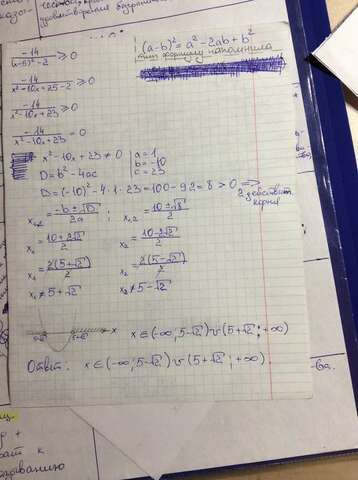 -14/((x-5)²-2) ≥ 0
(a-b)² = a² - 2ab + b²
тип формулу напомнила
-14/(x²-10x+25-2) ≥ 0
-14/(x²-10x+23) ≥ 0
-14/(x²-10x+23) = 0
x²-10x+23 ≠ 0
a = 1
b = -10
c = 23
D = b² - 4ac
D = (-10)² - 4·1·23 = 100 - 92 = 8 > 0 =>
2 действит. корня
x₁,₂ = (-b ± √D)/2a ; x₁,₂ = (10 ± √8)/2
x₁ = (10+2√2)/2 x₂ = (10-2√2)/2
x₁ = 2(5+√2)/2 x₂ = 2(5-√2)/2
x₁ ≠ 5+√2 x₂ ≠ 5-√2
5-√2 5+√2 x
x ∈ (-∞; 5-√2) ∪ (5+√2; +∞)
Ответ: x ∈ (-∞; 5-√2) ∪ (5+√2; +∞)
-6a.